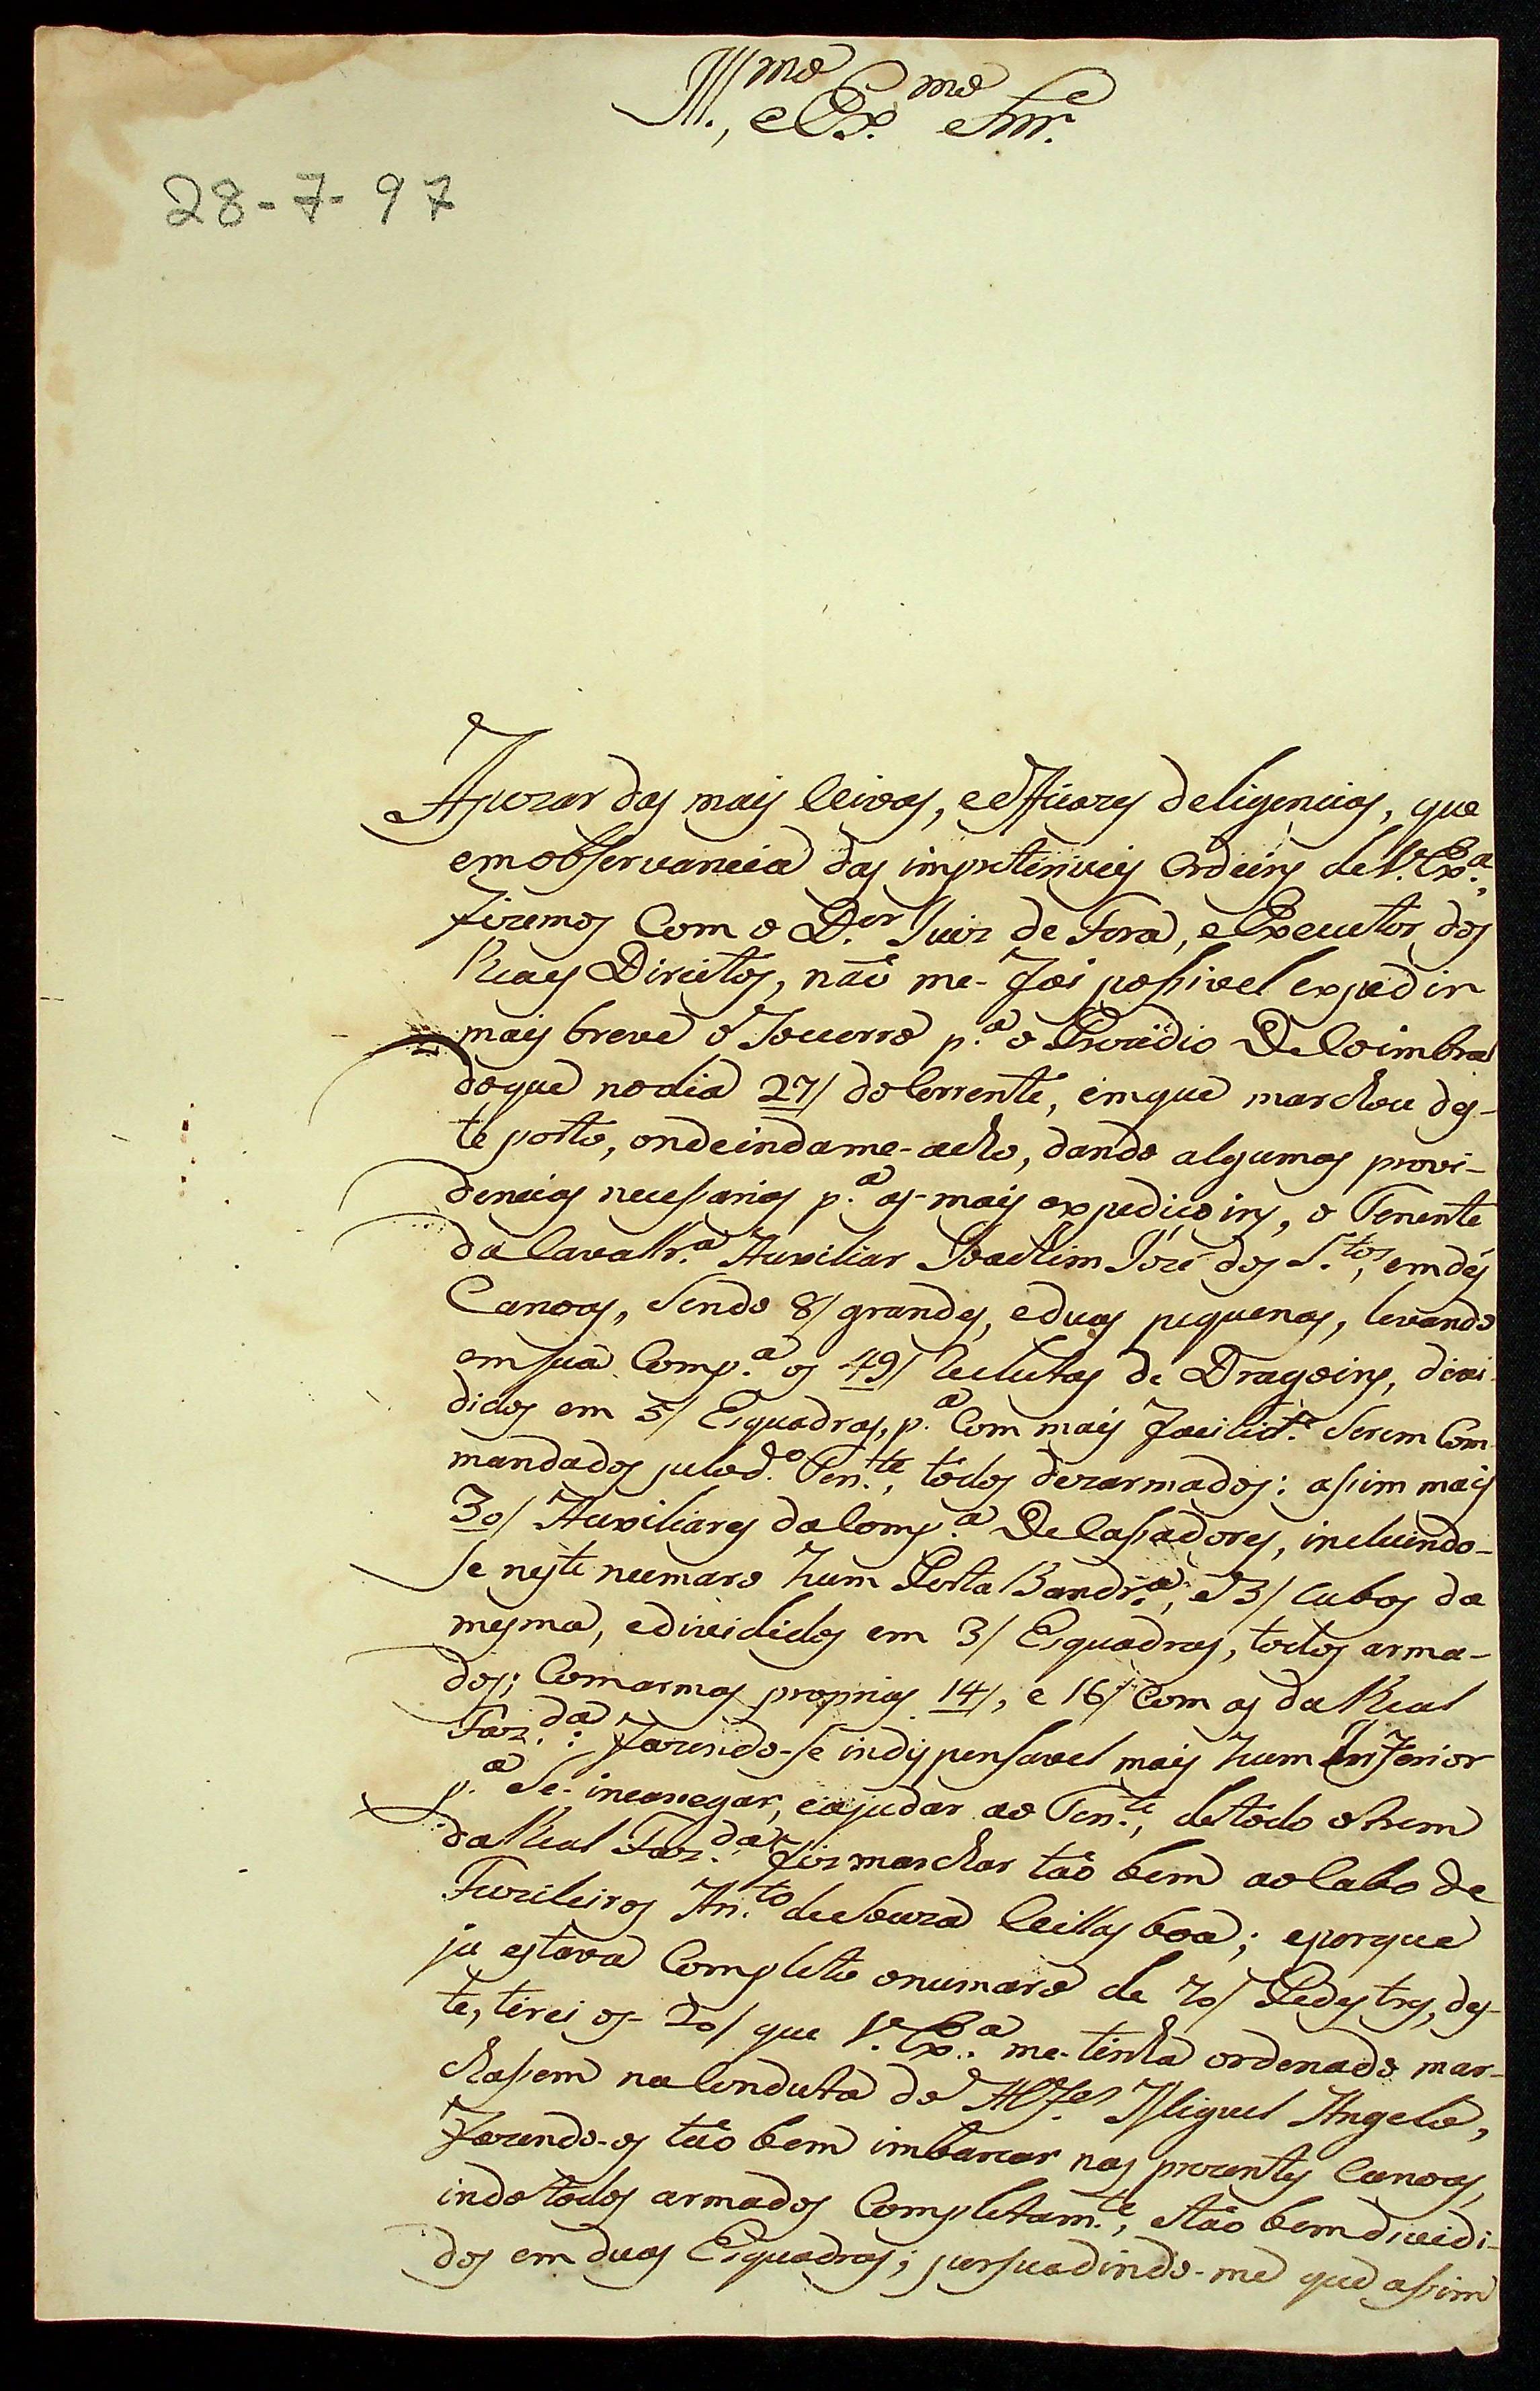 Ill.mo, e Ex.mo Snr.e
28-7-97
Apezar das mais leivas, e efficazes deligencias, que
em observancia das impreteriveis Ordeins de V. Ex.a,
fizemos Com o D.or Juiz de Fora, e Executor dos
Reaes Direitos, não me-foi possivel expedir
mais breve o Socorro p.a o Prezidio De Coimbra
do que no dia 27/ do Corrente, em que marchou des-
te porto, onde inda me-acho, dando algumas provi-
dencias necesarias p.a as-mais expediçoins, o Tenente
da Cavallr.a Auxiliar Joachim Jozé dos S.tos, em dés
Canoas, Sendo 8/ grandes, e duas piquenas, levando
em sua Comp.a os 49/ Reclutas de Dragoins, divi-
didos em 5/ Esquadras, p.a Com mais facilid.e Serem Com-
mandados pelo d.o Ten.te, todos dezarmados: asim mais
30/ Auxiliares da Comp.a De Casadores, incluindo-
se neste numaro hum Porta Bandr.a, e 3/ Cabos da
mesma, e divididos em 3/ Esquadras, todos arma-
dos; Com armas proprias 14/, e 16/ Com as da Real
Faz.da: fazendo-se indispensavel mais hum Inferior
p.a Se-incarregar, e ajudar ao Ten.te, de todo o trem
da Real Faz.da, fiz marchar tão bem ao Cabo de
Fuzileiros An.to de Souza Caillas boa; e porque
ja estava Completo o numaro de 70/ Pedestres, des-
te, tirei os-20/ que V. Ex.a me-tinha ordenado mar-
chasem na Conduta do Alf.es Miguel Angelo,
fazendo-os tão bem imbarcar nas prezentes Canoas,
indo todos armados Completam.te, e tão bem dividi-
dos em duas Esquadras; persuadindo-me que asim